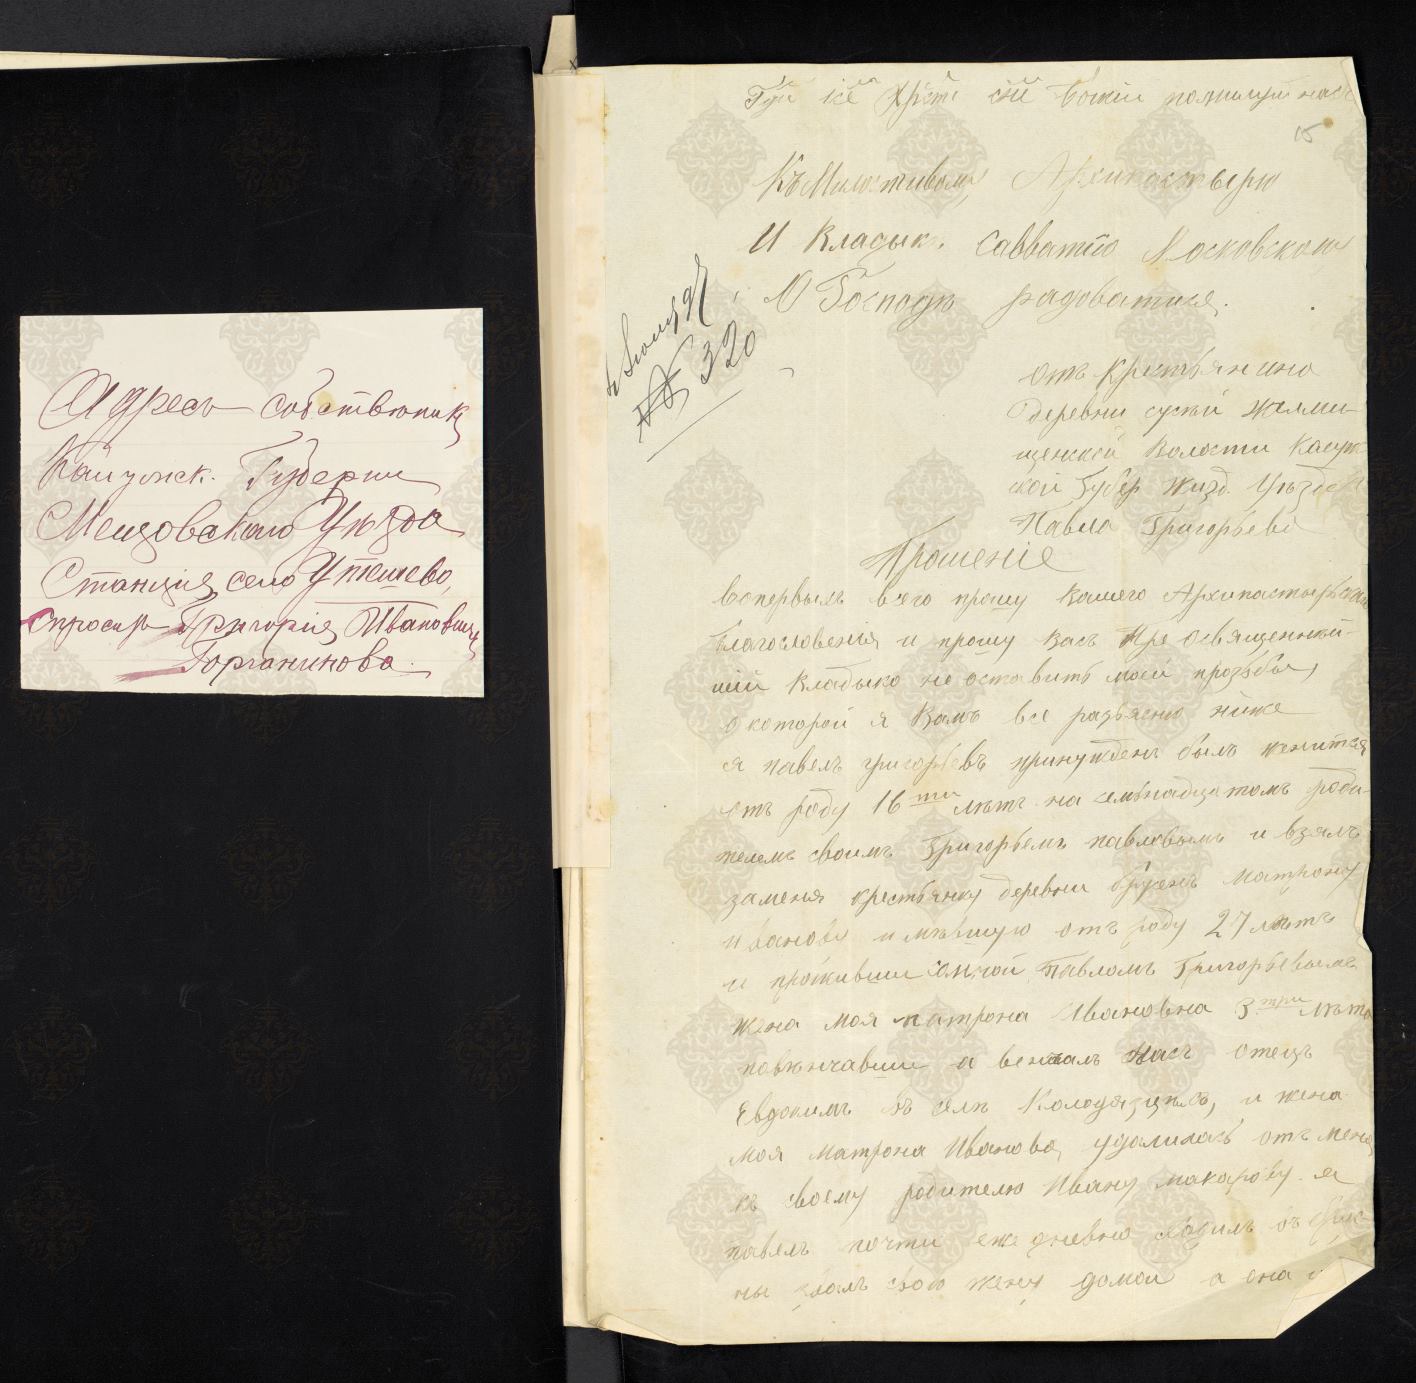 Адресъ собствѣник
Калужск. Губерни
Мещовскаго Уѣзда
Станция, село Утешево,
спросит Григория Ивановича
Горчанинова.
Гди Ісе Хрсте сне Божіи помилуй насъ
15
Къ Милостивому Архипастырю
И Владык. Савватію Московскому
О Господѣ радоватися.
№ 320
отъ Крестьянина
деревни сускй Желми-
щенской Волости Калуж
ской Губер Жизд. Уѣзда
Павла Григорьева
Прошеніе
вопервыхъ всего прошу вашего Архипастырскаго
благословения и прошу васъ Пре освященнѣй-
ший Владыко не оставить моей прозьбы,
о которой я Вамъ все разъясню ниже
я павелъ григорьевъ принужденъ былъ женится
отъ роду 16ти лѣтъ на семьнадцатомъ роди-
телемъ своимъ Григорьемъ павловымъ и взялъ
заменя крестьянку деревни Матрону
иванову имѣвшую отъ роду 27 лѣтъ
и проживши самной Павломъ Григорьевыме
жена моя матрона Ивановна 3три лѣта
повѣнчавши а венчалъ насъ отецъ
Евдокимъ въ селѣ Колодязцыхъ, и жена
моя матрона Иванова, удалилась отъ меня
къ своему родителю Ивану макарову. я
павелъ почти еже дневно ходилъ
ны звалъ свою жену домой а она